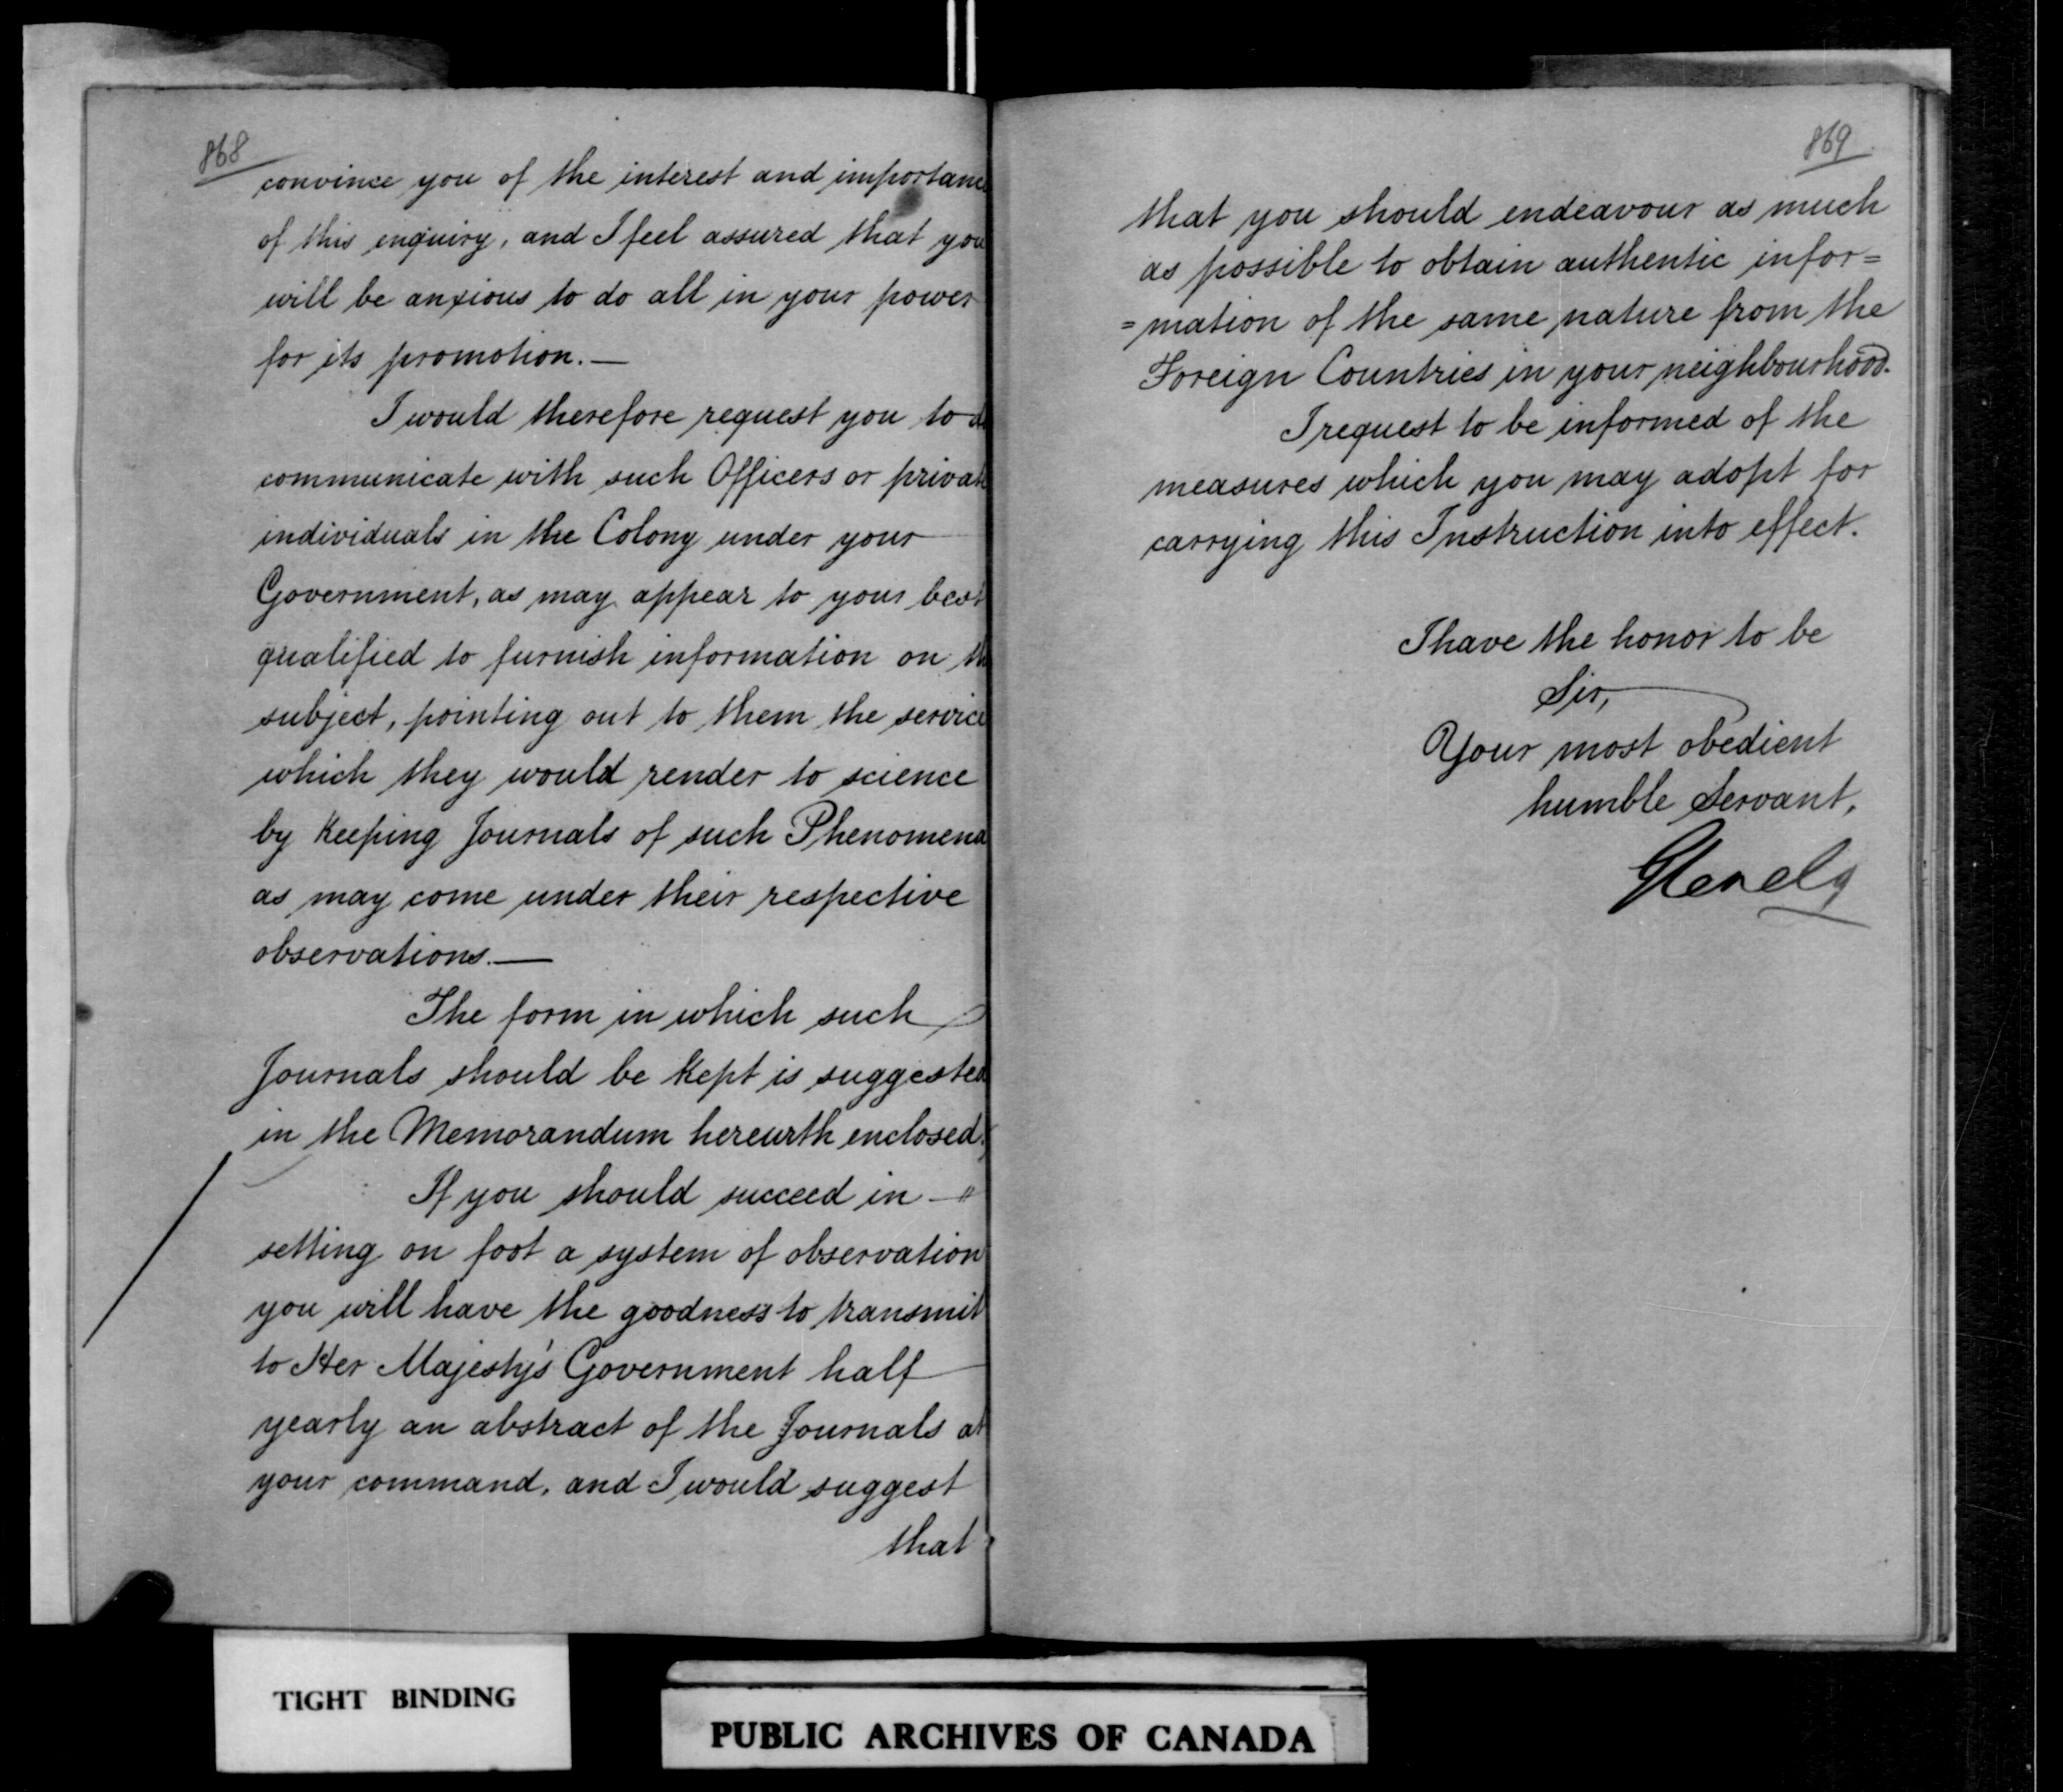 868
convince you of the interest and importanc
of this enquiry, and I feel assured that you
will be anxious to do all in your power
for its promotion.—
I would therefore request you to
communicate with such Officers or privat
individuals in the Colony under your
Government, as may appear to your best
qualified to furnish information on th
subject, pointing out to them the service
which they would render to science
by keeping Journals of such Phenomena
as may come under their respective
observations.—
The form in which such
Journals should be kept is suggested
in the Memorandum herewith enclosed.
If you should succeed in —
setting on foot a system of observation
you will have the goodness to transmit
to Her Majesty's Government half
yearly an abstract of the Journals at
your command, and I would suggest
that
869
that you should endeavour as much
as possible to obtain authentic infor=
=mation of the same nature from the
Foreign Countries in your neighbourhood.
I request to be informed of the
measures which you may adopt for
carrying this Instruction into effect.
I have the honor to be
Sir,
Your most obedient
humble Servant,
Glenelg
TIGHT BINDING
PUBLIC ARCHIVES OF CANADA